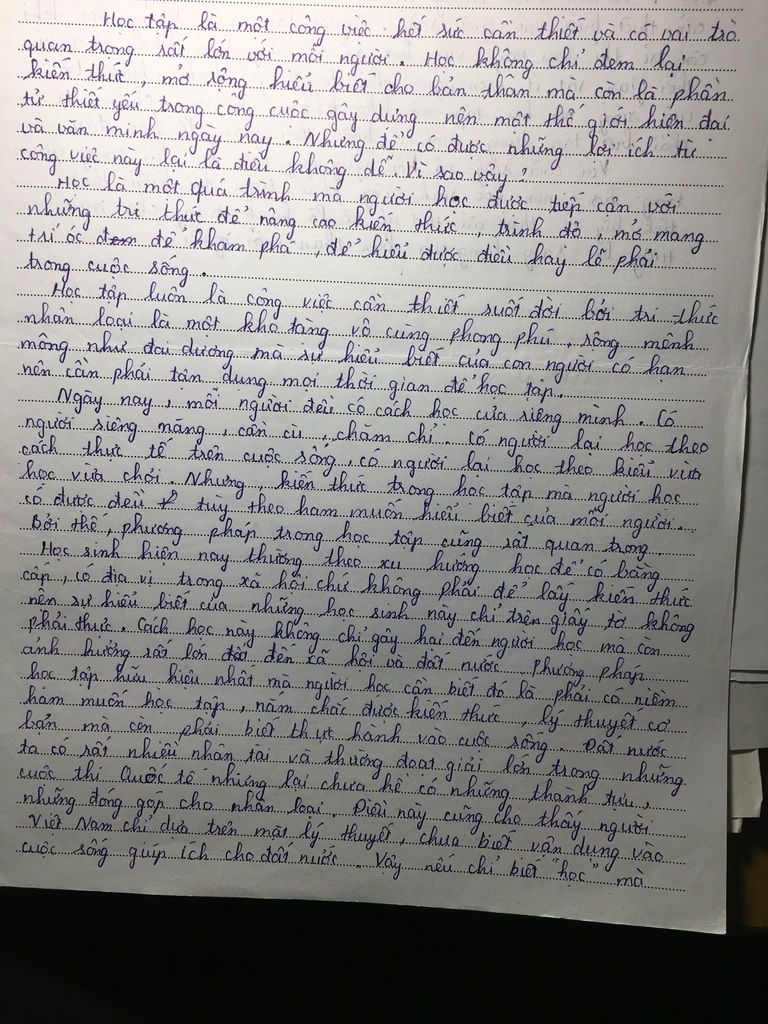 Học tập là một công việc hết sức cần thiết và có vai trò
quan trọng rất lớn với mỗi người. Học không chỉ đem lại
kiến thức, mở rộng hiểu biết cho bản thân mà còn là phần
tử thiết yếu trong công cuộc gây dựng nên một thế giới hiện đại
và văn minh ngày nay. Nhưng để có được những lợi ích từ
công việc này lại là điều không dễ. Vì sao vậy?
Học là một quá trình mà người học được tiếp cận với
những tri thức để nâng cao kiến thức, trình độ, mở mang
trí óc đem để khám phá, để hiểu được điều hay lẽ phải
trong cuộc sống.
Học tập luôn là công việc cần thiết suốt đời bởi tri thức
nhân loại là một kho tàng vô cùng phong phú, rộng mênh
mông như đại dương mà sự hiểu biết của con người có hạn
nên cần phải tận dụng mọi thời gian để học tập.
Ngày nay, mỗi người đều có cách học của riêng mình. Có
người siêng năng, cần cù, chăm chỉ. Có người lại học theo
cách thực tế trên cuộc sống, có người lại học theo kiểu vừa
học vừa chơi. Nhưng, kiến thức trong học tập mà người học
có được đều tùy theo ham muốn hiểu biết của mỗi người.
Bởi thế, phương pháp trong học tập cũng rất quan trọng.
Học sinh hiện nay thường theo xu hướng học để có bằng
cấp, có địa vị trong xã hội chứ không phải để lấy kiến thức
nên sự hiểu biết của những học sinh này chỉ trên giấy tờ không
phải thực. Cách học này không chỉ gây hại đến người học mà còn
ảnh hưởng rất lớn đến xã hội và đất nước. Phương pháp
học tập hữu hiệu nhất mà người học cần biết đó là phải có niềm
ham muốn học tập, nắm chắc được kiến thức, lý thuyết cơ
bản mà còn phải biết thực hành vào cuộc sống. Đất nước
ta có rất nhiều nhân tài và thường đoạt giải lớn trong những
cuộc thi Quốc tế nhưng lại chưa hề có những thành tựu,
những đóng góp cho nhân loại. Điều này cũng cho thấy người
Việt Nam chỉ dựa trên mặt lý thuyết, chưa biết vận dụng vào
cuộc sống giúp ích cho đất nước. Vậy nếu chỉ biết "học" mà